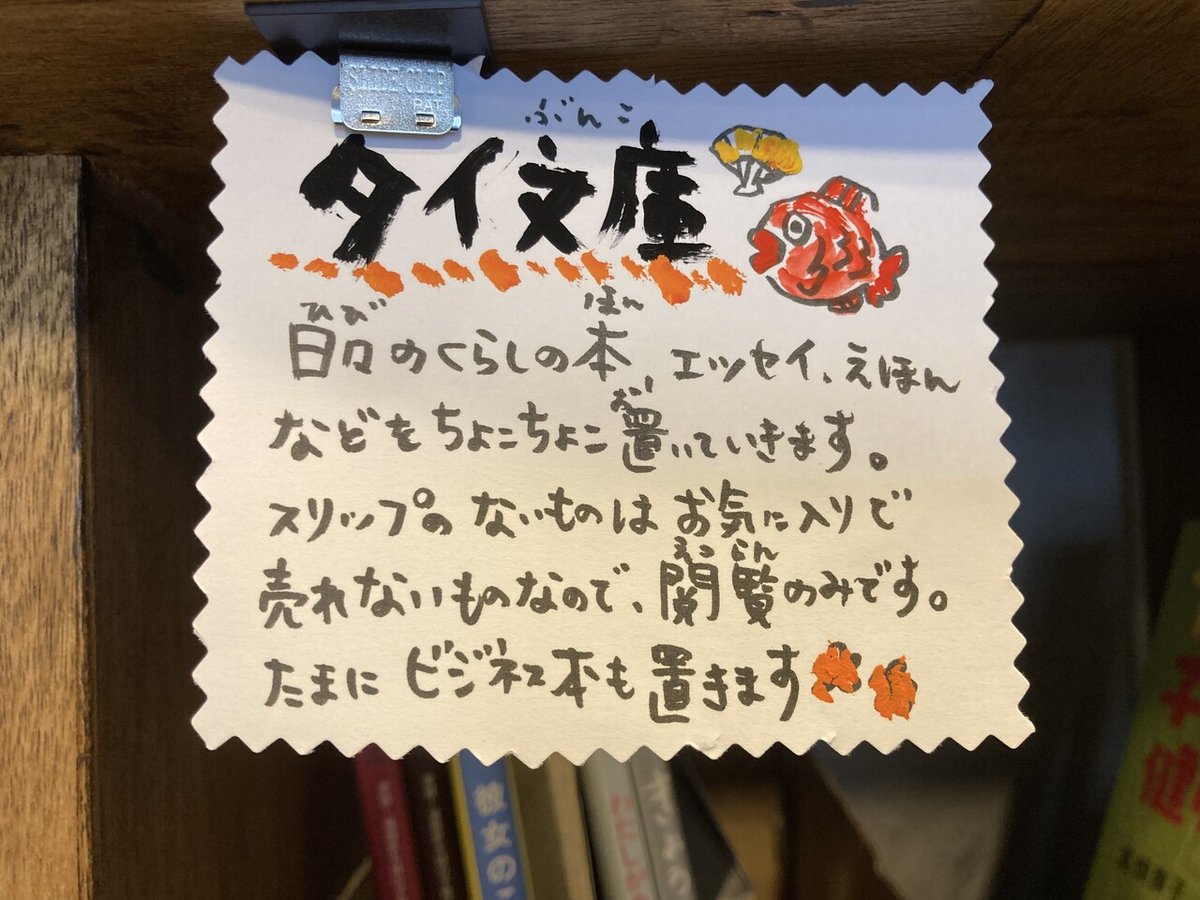 ぶんこ
タイ文庫
ひび ほん
日々のくらしの本、エッセイ、えほん
お
などをちょこちょこ置いていきます。
スリップのないものはお気に入りで
えつ らん
売れないものなので、閲覧のみです。
たまにビジネス本も置きます
彼女のこ